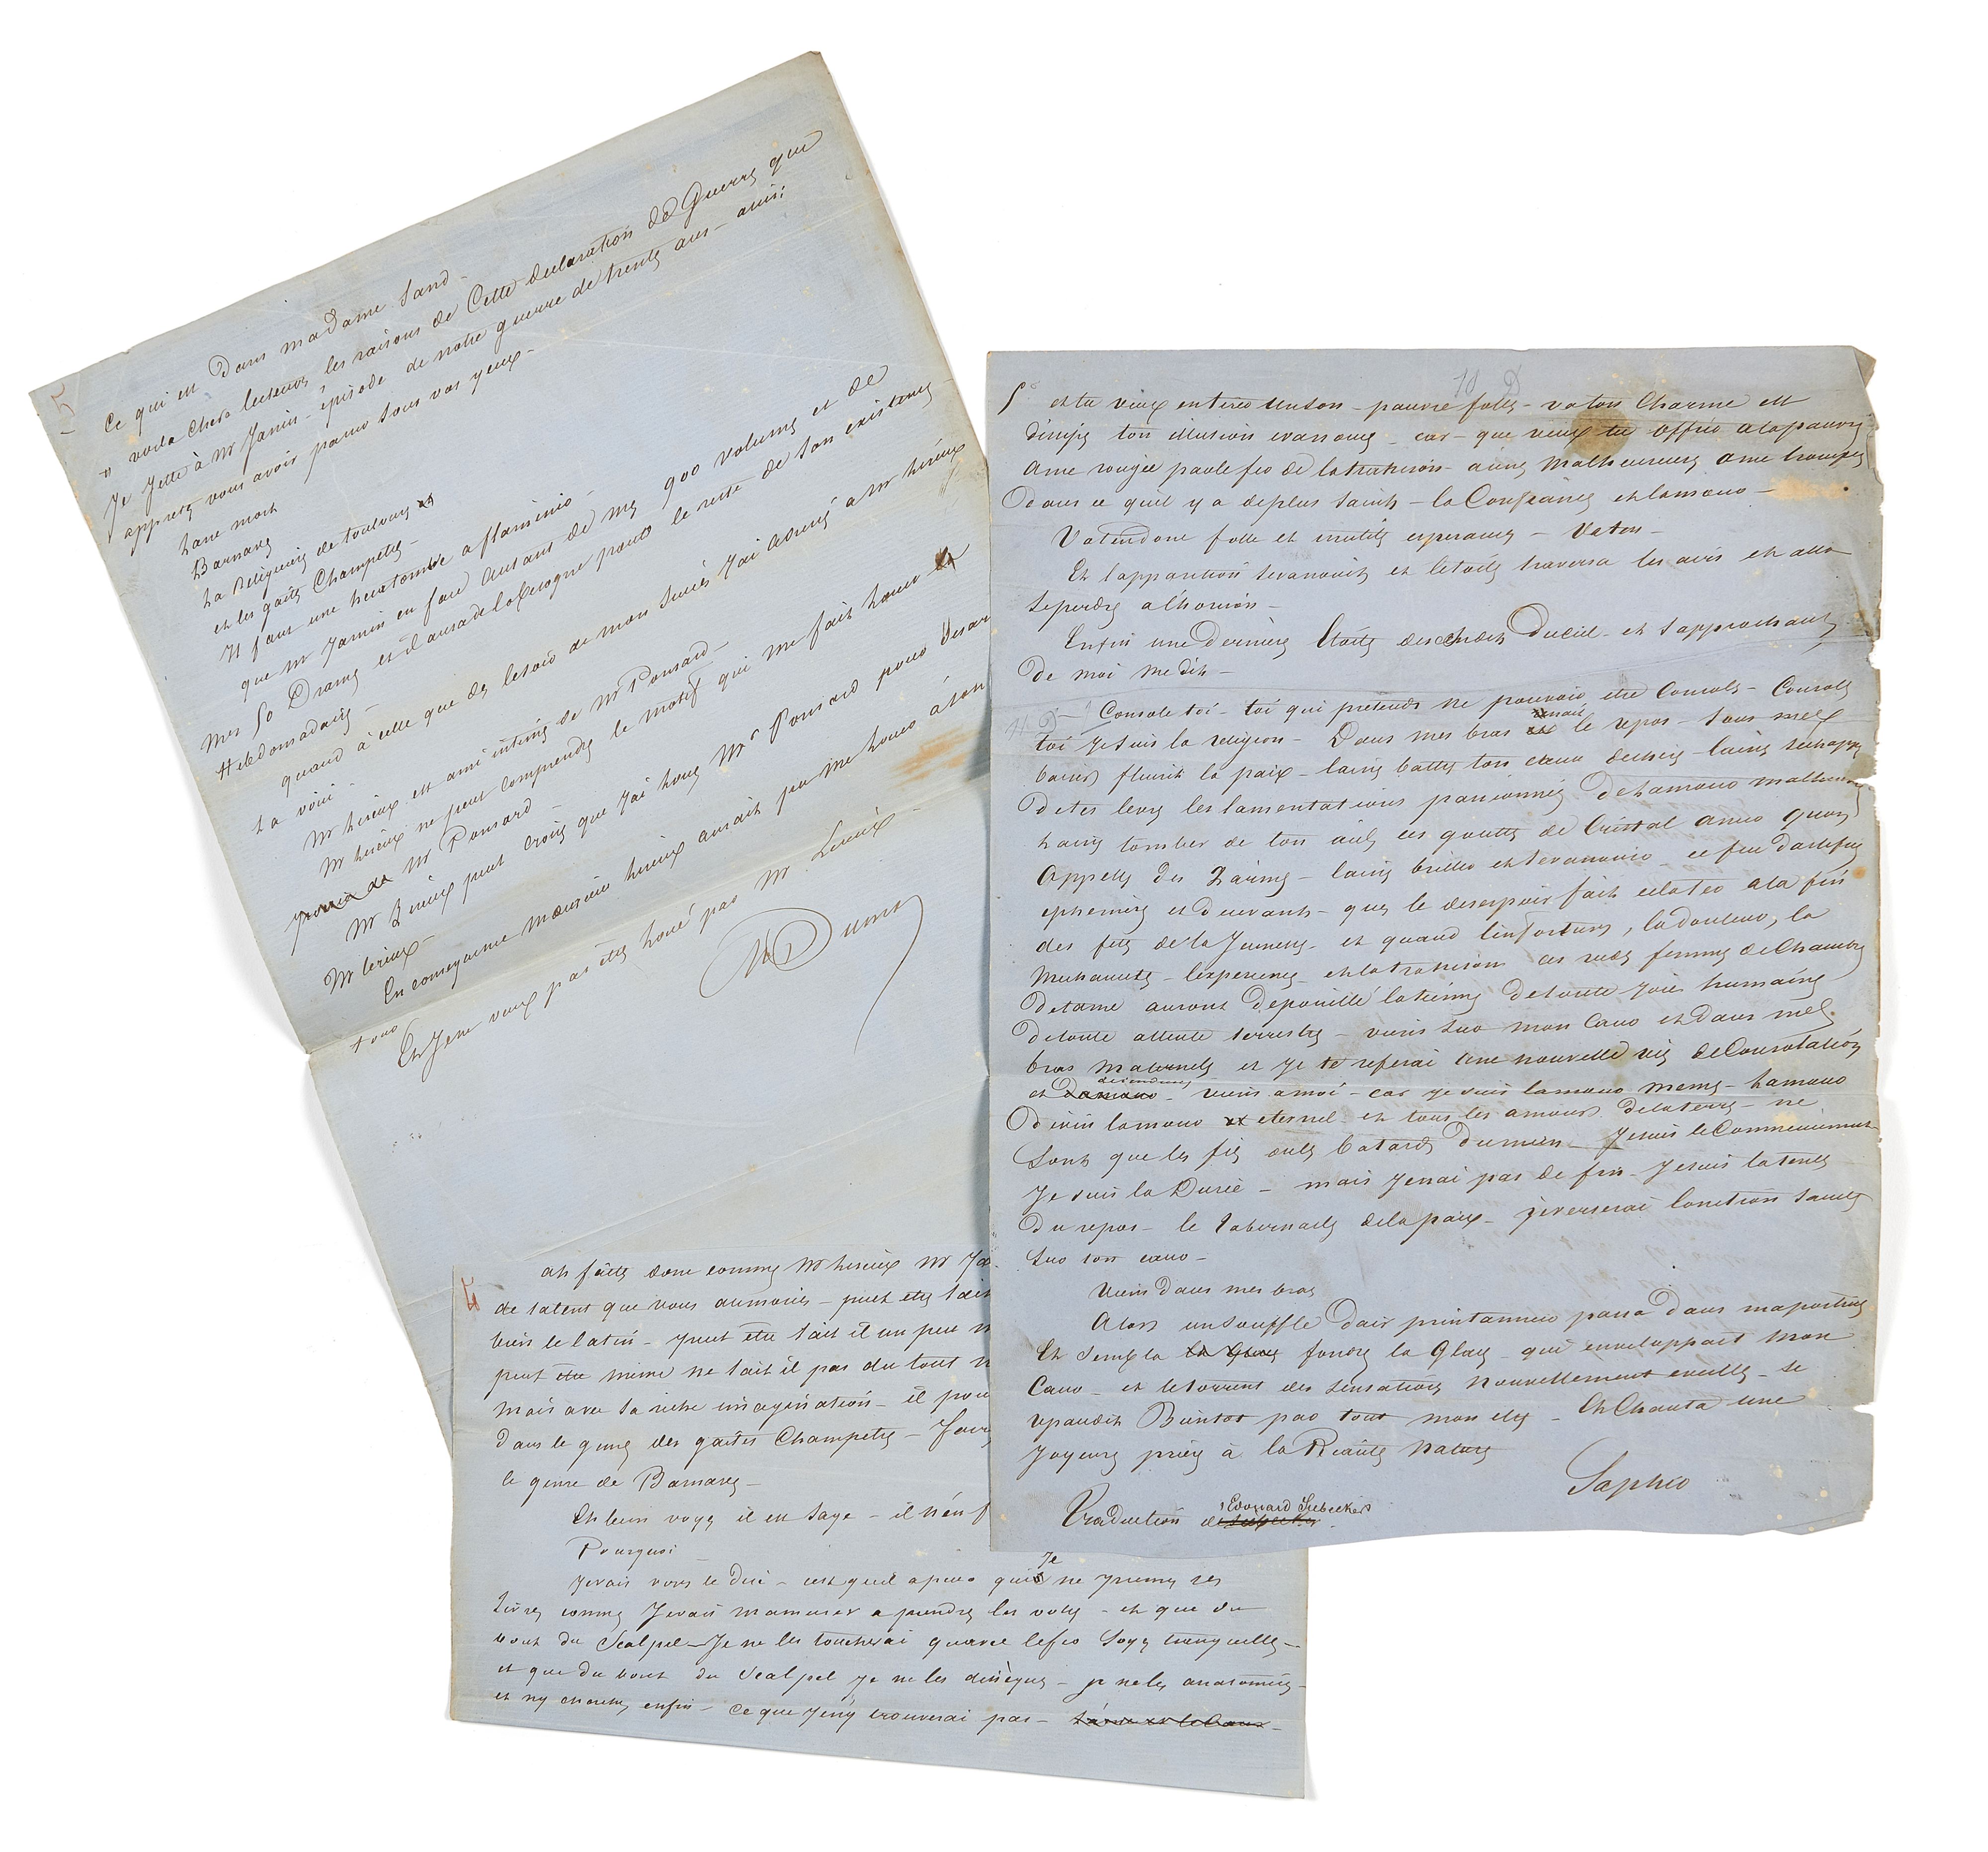 5
Ce qui est dans madame Sand –
" voila chers lecteurs les raisons de Cette declaration de Guerre que
Je Jette à Mr Janin – épisode de notre guerre de trente ans – ainsi
appres vous avoir passé sous vos yeux –
Lane mort
Barnave
La Religieuse de toulouse
et les gaités Champetres –
Il faut une hecatombe a flaminio –
que Mr Janin en face autant de mes 900 volumes et de
Mes 50 Drames et il aura de la besogne pour le reste de son existence
Hebdomadaire –
quand à celle que des le soir de mon succès J'ai donné a Mr Lireux
La voici –
Mr Lireux est ami intime de Mr Ponsard –
Mr Lireux ne peut comprendre le motif qui me fait louer
Mr Ponsard –
Mr Lireux peut croire que J'ai loué Mr Ponsard pour
Mr Lireux –
En consequence monsieur Lireux aurait pu me louer à son
tour
Et Je ne veux pas être loué par Mr Lireux –
ADumas
5
ah faites donc comme Mr Lireux Mr
de talent que vous aumoins – peut etre sait
bien le latin – peut être sait il un peu
peut être meme ne sait il pas du tout
mais avec sa riche imagination – il
dans le genre des gaités Champetres –
le genre de Barnave –
Eh bien voyez il est sage – il n'en
Pourquoi –
Je vais vous le dire – cest quil a peur que Je ne prenne ses
Livres comme Je vais m'amuser a prendre les votres – et que du
bout du Scalpel – Je ne les toucherai quavec le fer soyez tranquille –
et que du bout du Scalpel je ne les disseque – je ne les anatomise –
et ny cherche enfin – ce que J'en'y trouverai pas –
10 D
5 et tu veux entirer un son – pauvre folle – va ton Charme est
dissipé ton illusion evanouie – car – que veux tu offrir a la pauvre
ame rongée par le fer de latrahison – a une malheureuse ame trompée
dans ce quil y a de plus saint – la Confiance et lamour –
Va ten donc folle et inutile esperance – Va ten –
Et lapparition sevanouit et letoile traversa les airs et alla
seperdre a l'horison –
Enfin une derniere Etoile descendit Duciel – et sapprochant
De moi me dit –
11 D – Console toi – toi qui pretends ne pouvoir etre Consolé – Console
toi Je suis la religion – Dans mes bras nait le repos – sous mes
baisers fleurit la paix – laisse battre ton cœur dechiré – laisse sechapper
de tes levres les lamentations passionnées de lamour malheureux
Laisse tomber de ton œil ces gouttes de Cristal amer quon
appelle des Larmes – laisse briller et sevanouir – ce feu dartifice
ephemere et decevant – que le desespoir fait eclater a la fin
des fetes de la Jeunesse – et quand linfortune, la douleur, la
mechanceté – lexperience et latrahison ces rudes femmes de Chambre
de lame auront depouillé latienne de toute joie humaine
de toute attente terrestre – viens sur mon Cœur et dans mes
bras maternels et je te referai une nouvelle vie de Consolation
et – viens a moi – car je suis lamour meme – Lamour
Divin lamour eternel et tous les amours delaterre – ne
sont que les fils ou les batards du mien – Je suis le Commencement
Je suis la Durée – mais Jenai pas de fin – Je suis latente
Du repos – le tabernacle de la paix – je verserai lonction sainte
sur ton cœur –
Viens dans mes bras
Alors un souffle d'air printannier passa dans ma poitrine
Et sembla fondre la Glace – qui enveloppait mon
Cœur – et le torrent des sensations nouvellement eveillées – se
repandit Bientot par tout mon etre – Et Chanta une
Joyeuse priere à la Riante Nature
Sapho
Traduction de Edouard Siebecker